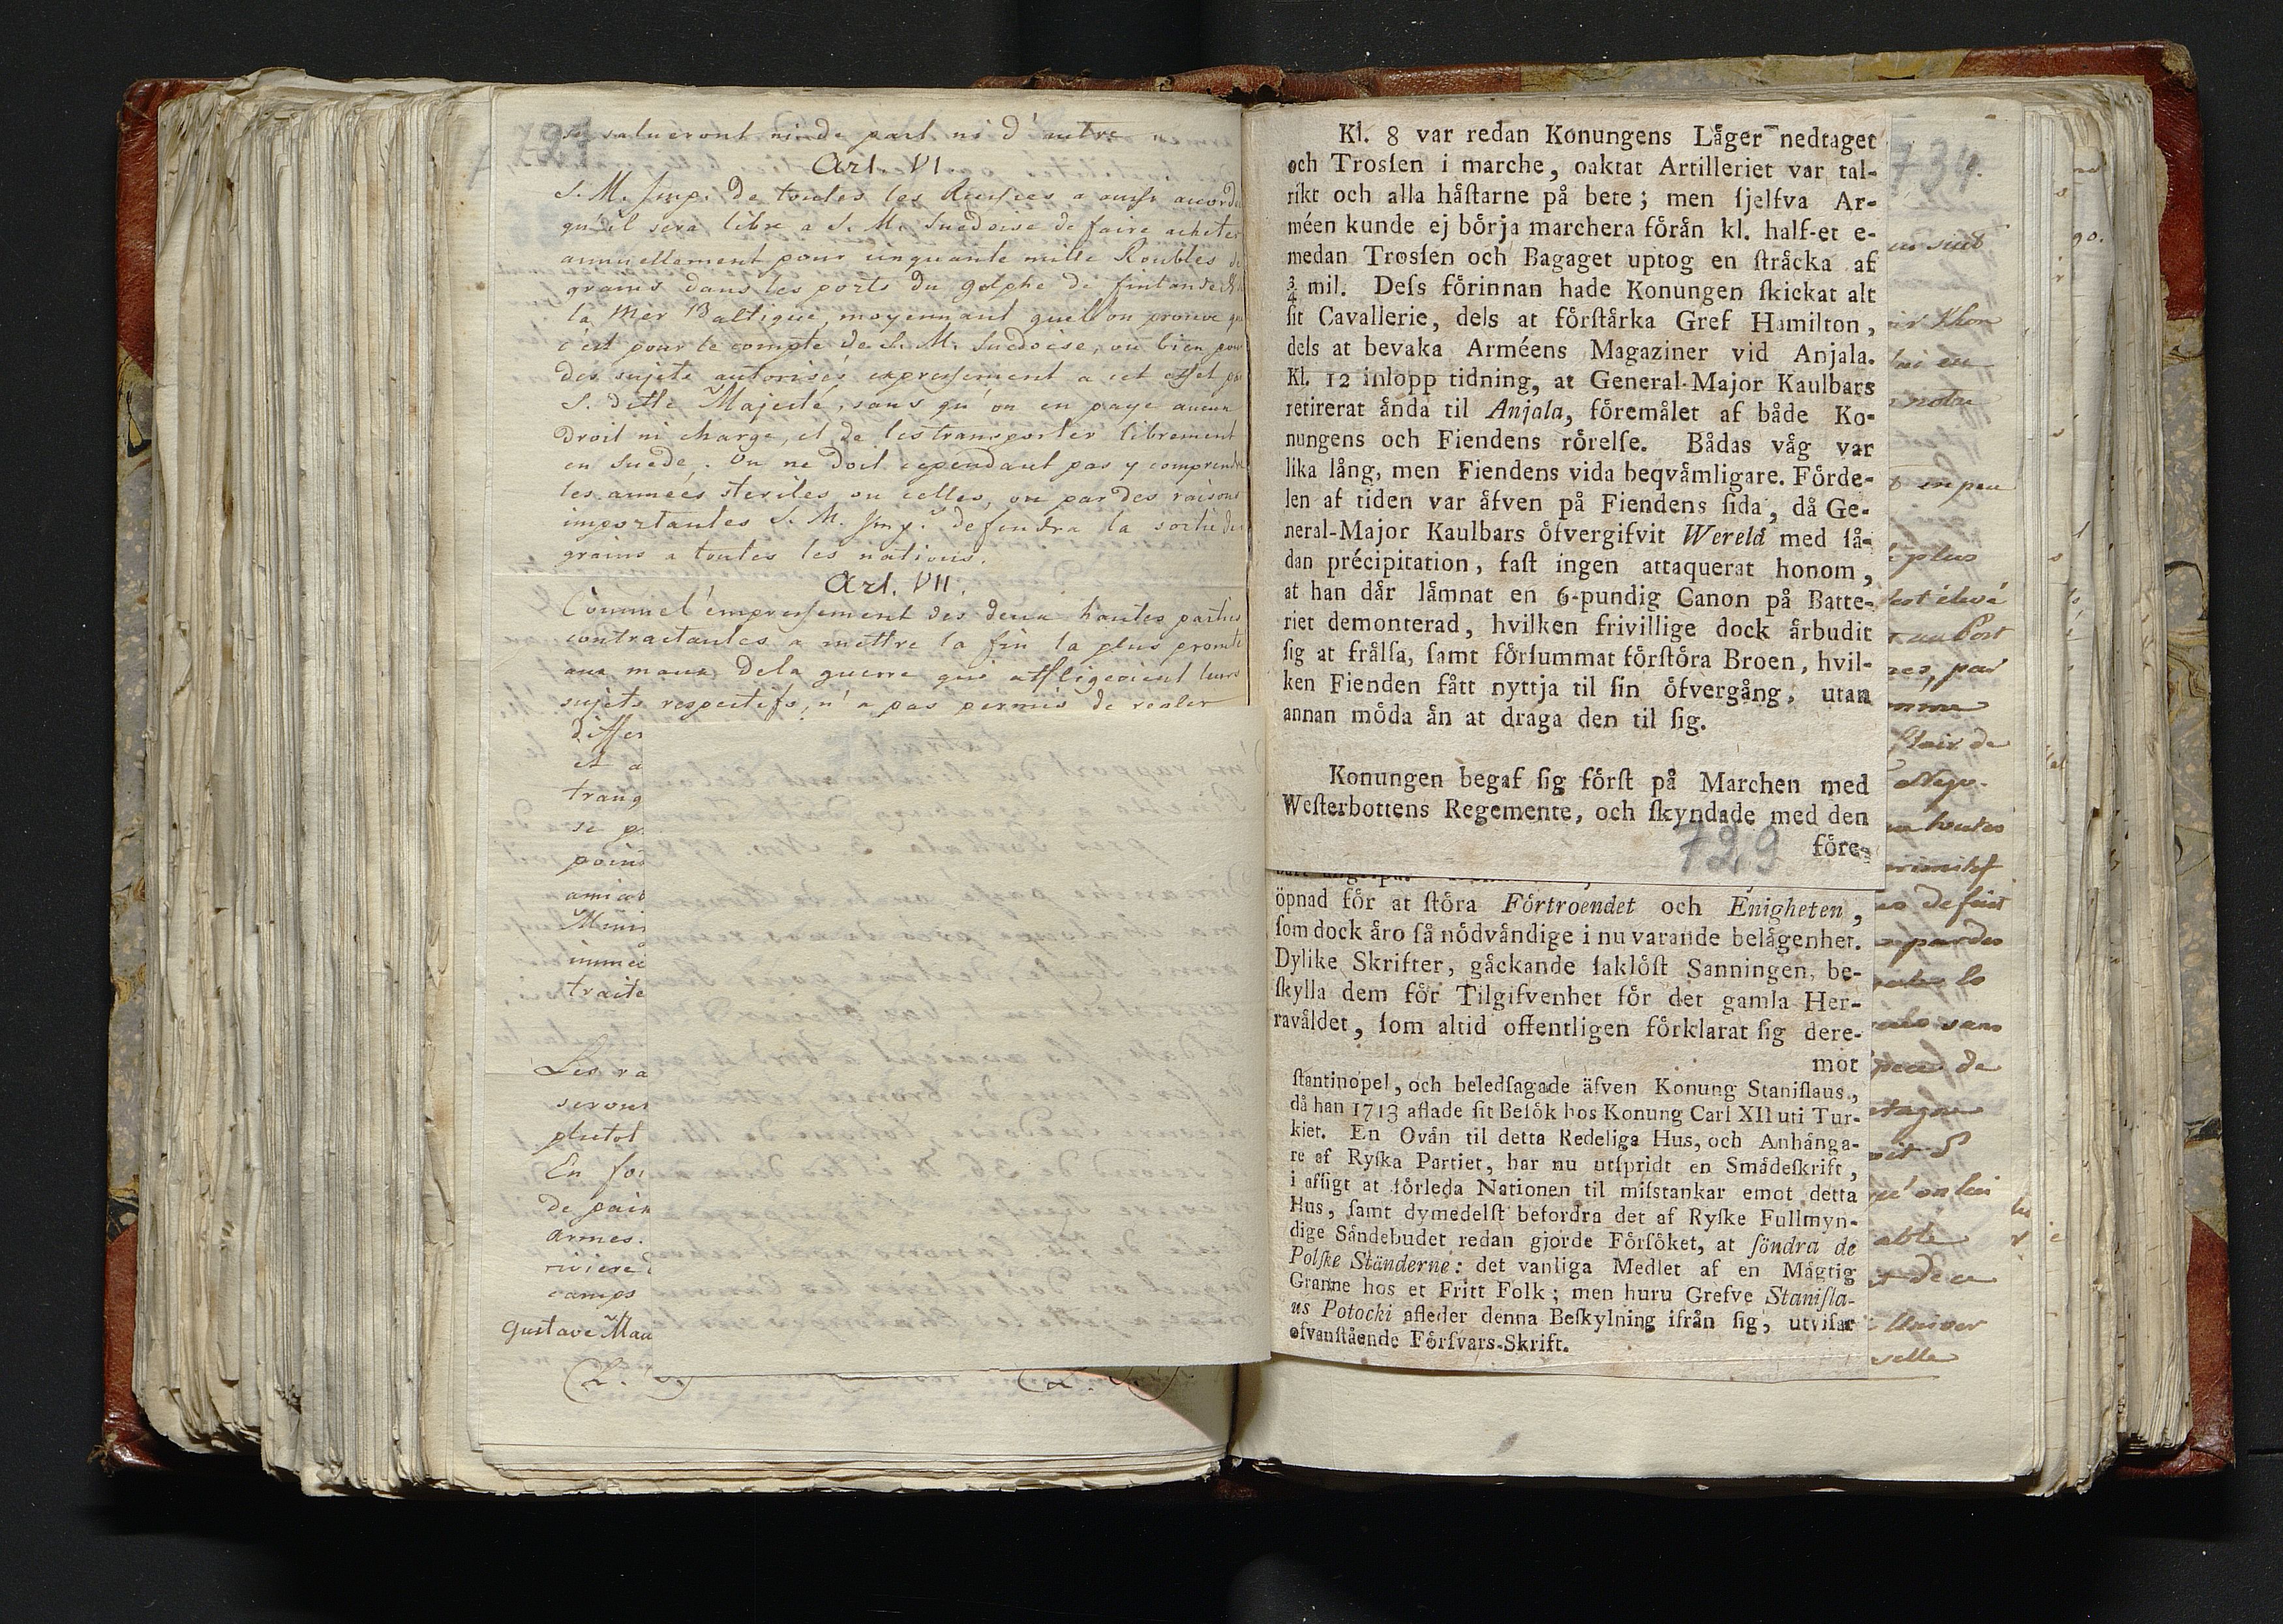 se salueront ni de part ni d'autre
Art. VI.
S. M. Imp. de toutes les Russies a aussi accordé
qu'il sera libre a S. M. Suedoise de faire acheter
annuellement pour cinquante mille Roubles de
grains dans les ports du golphe de finlande &
la Mer Baltique, moyennant quel'on prouve que
c'est pour le compte de S. M. Suedoise, ou bien pour
des sujets autorisés expressement a cet effet par
S. ditte Majesté, sans qu'on en paye aucun
droit ni charge, et de les transporter librement
en Suede. On ne doit cependant pas y comprendre
les années steriles ou celles, ou par des raisons
importantes S. M. Imp. defendra la sortie des
grains a toutes les nations.
Art. VII.
Comme l'empressement des deux hautes parties
contractantes a mettre la fin la plus promte
aux maux dela guerre qui affligeoient leurs
sujets respectifs, n'a pas permis de regler
differ
et a
tranq
se p
point
amiab
Minis
immed
traite
Les ra
seront
plutot
En foi
de pain
armes.
riviere
camps
Gustave Mau
(L. S.) (L. S.)
Kl. 8 var redan Konungens Låger nedtaget
och Trosſen i marche, oaktat Artilleriet var tal-
rikt och alla håſtarne på bete; men ſjelfva Ar-
méen kunde ej börja marchera förån kl. half-et e-
medan Trosſen och Bagaget uptog en ſtråcka af
¾ mil. Deſs förinnan hade Konungen ſkickat alt
ſit Cavallerie, dels at förſtårka Gref Hamilton,
dels at bevaka Arméens Magaziner vid Anjala.
Kl. 12 inlopp tidning, at General-Major Kaulbars
retirerat ånda til Anjala, föremålet af både Ko-
nungens och Fiendens rörelſe. Bådas våg var
lika lång, men Fiendens vida beqvåmligare. Förde-
len af tiden var åfven på Fiendens ſida, då Ge-
neral-Major Kaulbars öfvergifvit Werelä med ſå-
dan précipitation, faſt ingen attaquerat honom,
at han dår låmnat en 6-pundig Canon på Batte-
riet demonterad, hvilken frivillige dock årbudit
ſig at frålſa, ſamt förſummat förſtöra Broen, hvil-
ken Fienden fått nyttja til ſin öfvergång, utan
annan möda ån at draga den til ſig.
Konungen begaf ſig förſt på Marchen med
Weſterbottens Regemente, och ſkyndade med den
före-
729
öpnad för at ſtöra Förtroendet och Enigheten,
ſom dock åro ſå nödvåndige i nu varande belågenhet.
Dylike Skrifter, gåckande ſaklöſt Sanningen, be-
ſkylla dem för Tilgifvenhet för det gamla Her-
ravåldet, ſom altid offentligen förklarat ſig dere-
mot
ſtantinopel, och beledſagade äfven Konung Staniſlaus,
då han 1713 aflade ſit Beſök hos Konung Carl XII uti Tur-
kiet. En Ovån til detta Redeliga Hus, och Anhånga-
re af Ryſka Partiet, har nu utſpridt en Smådeſkrift,
i afſigt at förleda Nationen til miſstankar emot detta
Hus, ſamt dymedelſt befordra det af Ryſke Fullmyn-
dige Såndebudet redan gjorde Förſöket, at ſöndra de
Polſke Ständerne: det vanliga Medlet af en Mågtig
Granne hos et Fritt Folk; men huru Grefve Staniſla-
us Potocki afleder denna Beſkylning ifrån ſig, utviſar
ofvanſtående Förſvars-Skrift.
734
en peu
plus
est elevé
au Port
par
de
hautes
de
sans
de
qu'on lui
able
de ce